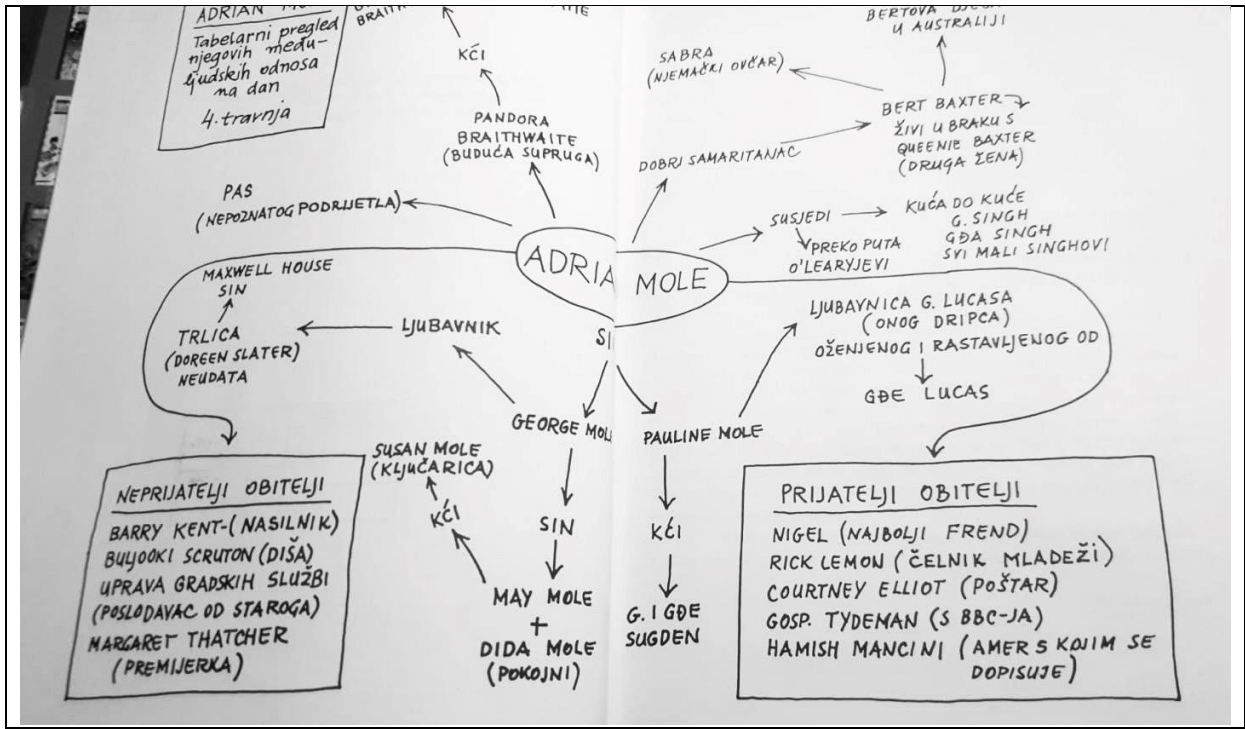 ADRIAN
Tabelarni pregled
njegovih među-
ljudskih odnosa
na dan
4. travnja
BRAITHWAITE
KĆI
PANDORA
BRAITHWAITE
(BUDUĆA SUPRUGA)
BERTOVA
U AUSTRALIJI
SABRA
(NJEMAČKI OVČAR)
BERT BAXTER
ŽIVI U BRAKU S
QUEENIE BAXTER
(DRUGA ŽENA)
DOBRI SAMARITANAC
PAS
(NEPOZNATOG PODRIJETLA)
SUSJEDI
KUĆA DO KUĆE
G. SINGH
GĐA SINGH
SVI MALI SINGHOVI
PREKO PUTA
O'LEARYJEVI
ADRIA MOLE
MAXWELL HOUSE
SIN
TRLICA
(DOREEN SLATER)
NEUDATA
LJUBAVNIK
SI
LJUBAVNICA G. LUCASA
(ONOG DRIPCA)
OŽENJENOG I RASTAVLJENOG OD
GĐE LUCAS
GEORGE MOL
PAULINE MOLE
SUSAN MOLE
(KLJUČARICA)
KĆI
SIN
KĆI
MAY MOLE
+
DIDA MOLE
(POKOJNI)
G. I GĐE
SUGDEN
NEPRIJATELJI OBITELJI
BARRY KENT-(NASILNIK)
BULJOOKI SCRUTON (DIŠA)
UPRAVA GRADSKIH SLUŽBI
(POSLODAVAC OD STAROGA)
MARGARET THATCHER
(PREMIJERKA)
PRIJATELJI OBITELJI
NIGEL (NAJBOLJI FREND)
RICK LEMON (ČELNIK MLADEŽI)
COURTNEY ELLIOT (POŠTAR)
GOSP. TYDEMAN (S BBC-JA)
HAMISH MANCINI (AMER S KOJIM SE
DOPISUJE)